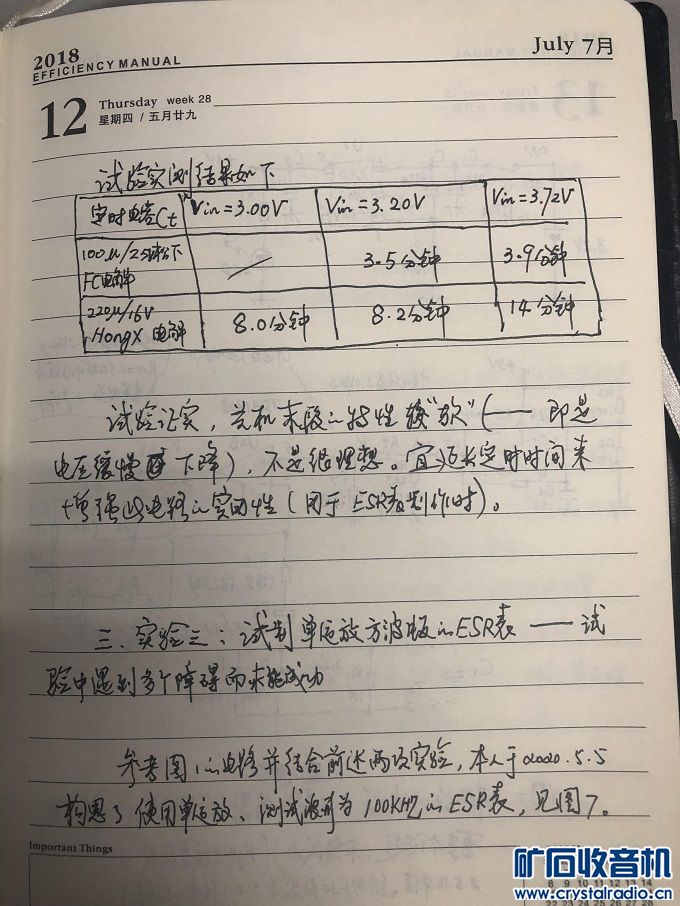 2018
EFFICIENCY MANUAL
July 7月
12
Thursday week 28
星期四 / 五月廿九
试验实测结果如下
定时电容Ct Vin=3.00V Vin=3.20V Vin=3.72V
100μ/25V松下
FC电解 / 3.5分钟 3.9分钟
220μ/16V
HongX 电解 8.0分钟 8.2分钟 14分钟
试验证实，关机末段的特性较“软”（—— 即是
电压缓慢下降），不是很理想。宜延长定时时间来
增强此电路的实用性（用于ESR表制作时）。
三. 实验三：试制单运放方波版的ESR表 —— 试
验中遇到多个障碍而未能成功
参考图1的电路并结合前述两项实验，本人于2020.5.5
构思了使用单运放、测试波形为100KHZ的ESR表，见图7。
Important Things
矿石收音机
www.crystalradio.cn
8 9 10 11 12 13 14
22 23 24 25 26 27 28